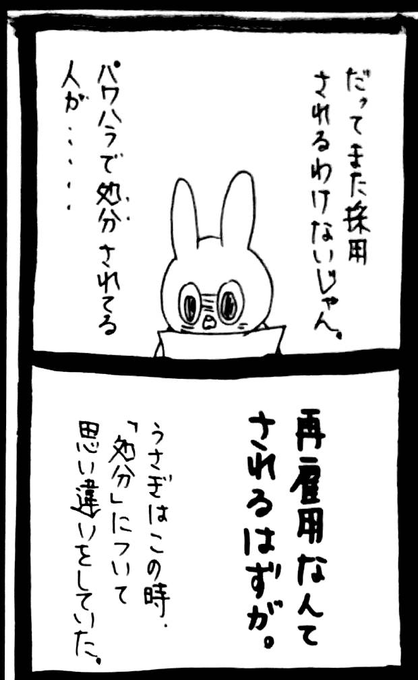 だってまた採用
されるわけないじゃん。
パワハラで処分されてる
人が・・・・・
再雇用なんて
されるはずが。
うさぎはこの時.
「処分」について
思い違いをしていた。